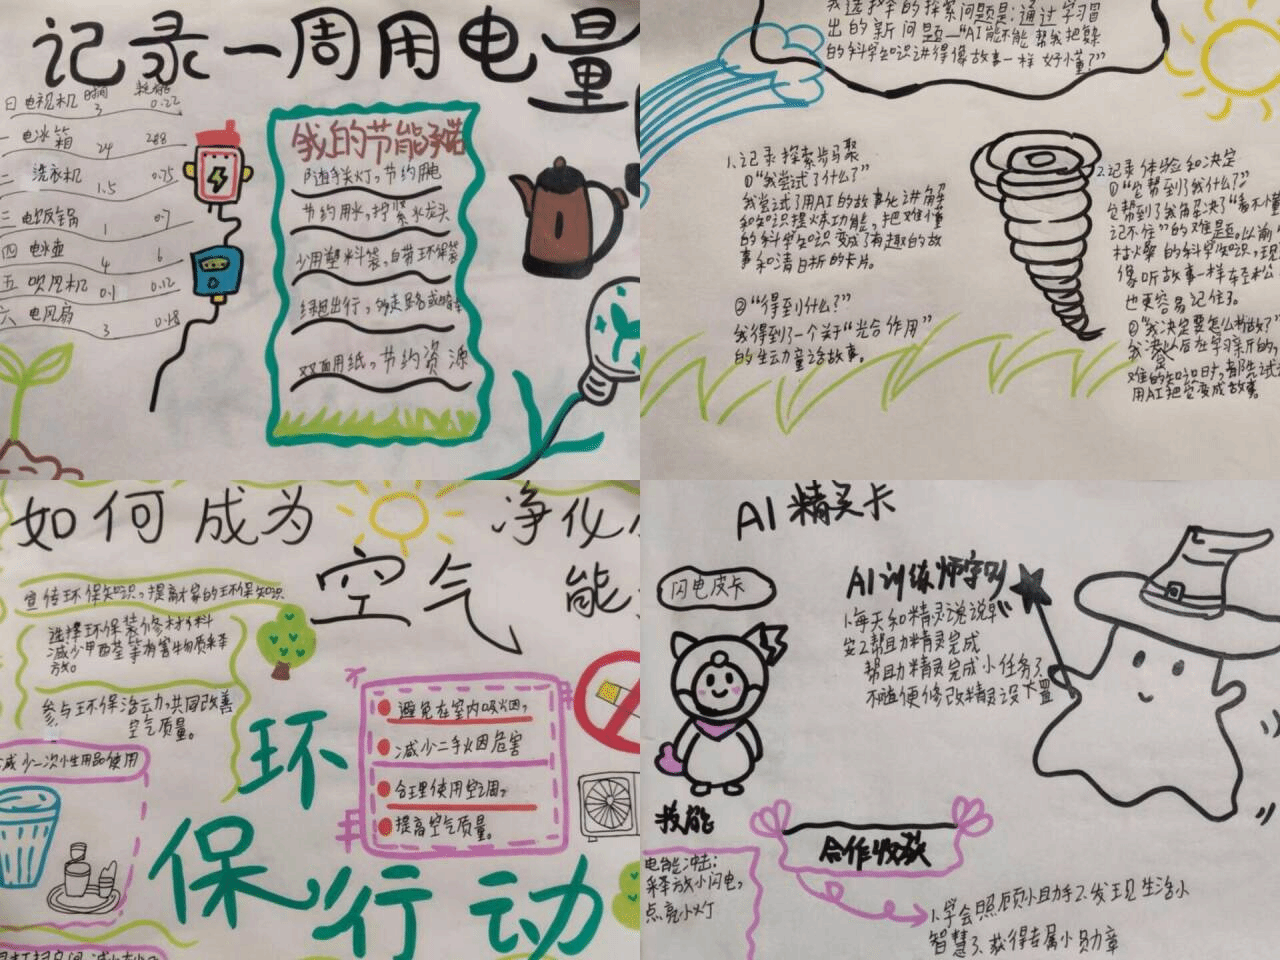 记录一周用电量
时间 耗能
日 电视机 3 0.22
一 电冰箱 24 288
二 洗衣机 1.5 0.75
三 电饭锅 1 0.7
四 电水壶 4 6
五 吹风机 0.1 0.12
六 电风扇 3 0.18
我的节能承诺
随手关灯,节约用电
节约用水,拧紧水龙头
少用塑料袋,自带环保袋
绿色出行,多走路或骑车
双面用纸,节约资源
我选择的探索问题是:通过学习冒
出的新问题—“AI能不能帮我把复杂
的科学知识讲得像故事一样好懂?”
1.记录探索步骤
①“我尝试了什么?”
我尝试了用AI的故事化讲解
和知识提炼功能,把难懂
的科学知识变成了有趣的故
事和清晰的卡片。
②“得到什么?”
我得到了一个关于“光合作用”
的生动童话故事。
2.记录体验和决定
①“它帮到了我什么?”
它帮到了我解决了“看不懂
记不住”的难题。以前
的科学知识,现
像听故事一样轻松
也更容易记住了。
②“我决定要怎么
我决定以后在学习新的,
难的知识时,都先试
用AI把它变成故事。
如何成为 净化
空气 能
宣传环保知识,提高大家的环保知识
选择环保装修材料
减少甲醛等有害物质释
放。
参与环保活动,共同改善
空气质量。
减少一次性用品使用
避免在室内吸烟,
减少二手烟危害
合理使用空调,
提高空气质量。
环
保行动
AI精灵卡
闪电皮卡
AI训练师守则
1.每天和精灵说说早
安2.帮助精灵完成
帮助精灵完成小任务3.
不随便修改精灵设置
技能
电能冲击:
释放小闪电,
点亮小灯
合作收获
1.学会照顾小助手2.发现生活小
智慧3.获得专属小勋章